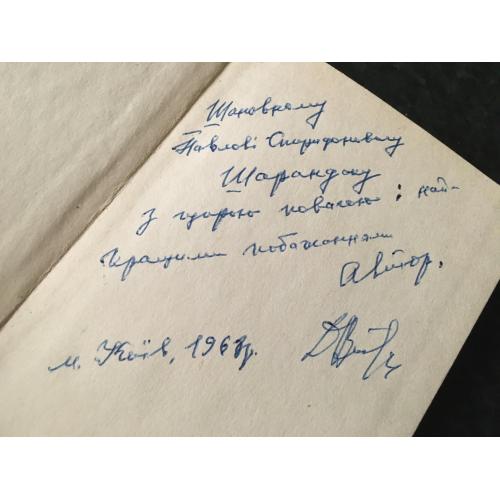 Шановному
Павлові Спиридоновичу
Шарандаку
З щирою повагою і най-
кращими побажаннями
Автор.
м. Київ, 1963р.